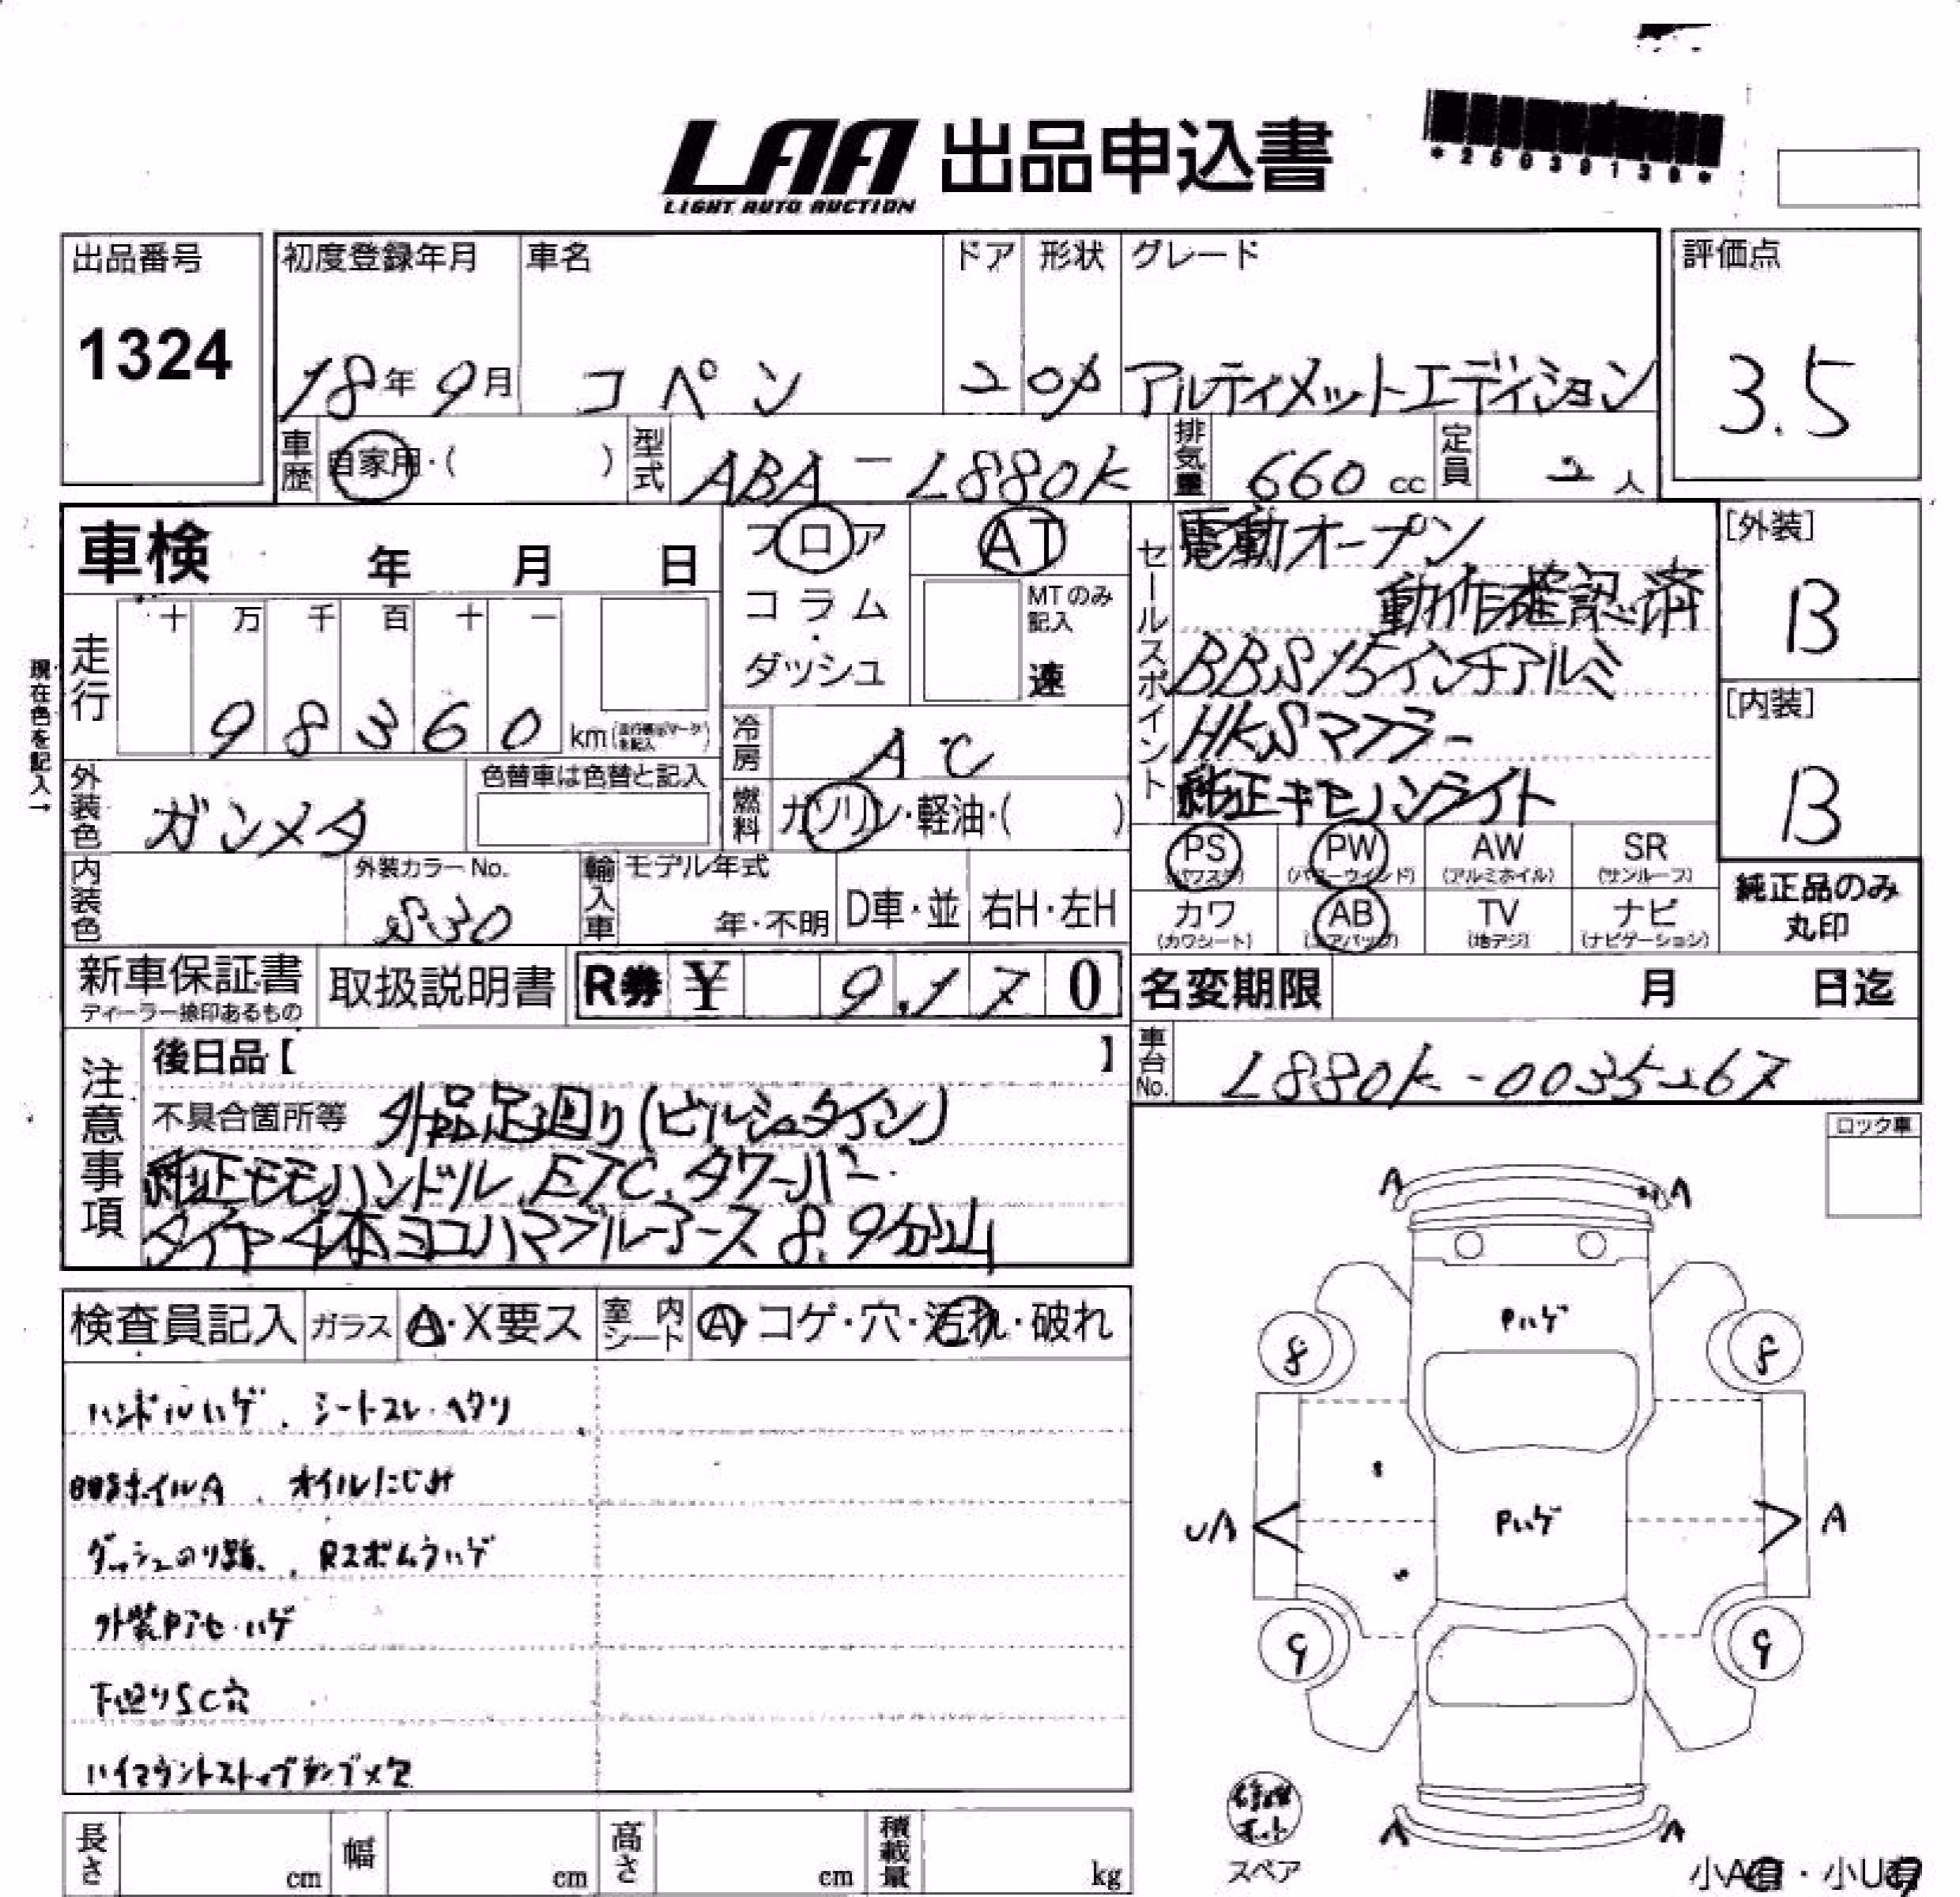 LAA 出品申込書
LIGHT AUTO AUCTION
*25039130*
出品番号
1324
初度登録年月 車名 ドア 形状 グレード
18年9月 コペン 2 OP アルティメットエディション
評価点
3.5
車歴 自家用・( ) 型式 ABA-L880K 排気量 660cc 定員 2人
車検 年 月 日
フロア
コラム
・
ダッシュ
AT
MTのみ記入
速
セールスポイント
電動オープン
動作確認済
BBS15インチアルミ
HKSマフラー
純正キセノンライト
[外装]
B
[内装]
B
現在色を記入→
走行 十 万 千 百 十 一
98360 km
冷房 AC
外装色 ガンメタ 色替車は色替と記入
燃料 ガソリン・軽油・( )
PS (パワステ) PW (パワーウインド) AW (アルミホイル) SR (サンルーフ)
カワ (カワシート) AB (エアバッグ) TV (地デジ) ナビ (ナビゲーション)
純正品のみ
丸印
内装色 外装カラーNo. S30 輸入車 モデル年式 年・不明 D車・並 右H・左H
新車保証書 取扱説明書 R券 ¥ 9,170
ディーラー捺印あるもの
名変期限 月 日迄
車台No. L880K-0035267
注意事項
後日品【 】
不具合箇所等 外品足廻り(ビルシュタイン)
純正モモハンドル、ETC、タワーバー
タイヤ4本ヨコハマブルーアース 8.9分山
ロック車
検査員記入 ガラス A・X要ス 室内シート A・コゲ・穴・汚れ・破れ
ハンドルハゲ、シートスレ・ヘタリ
ホイルA、オイルにじみ
ダッシュのり跡、Rスポムラハゲ
外装Pアセ・ハゲ
下廻りSC穴
ハイマウントストップランプ欠
A A
Pハゲ
8 8
UA Pハゲ A
9 9
A A
修理キット
スペア
小A有・小U有
長さ cm 幅 cm 高さ cm 積載量 kg